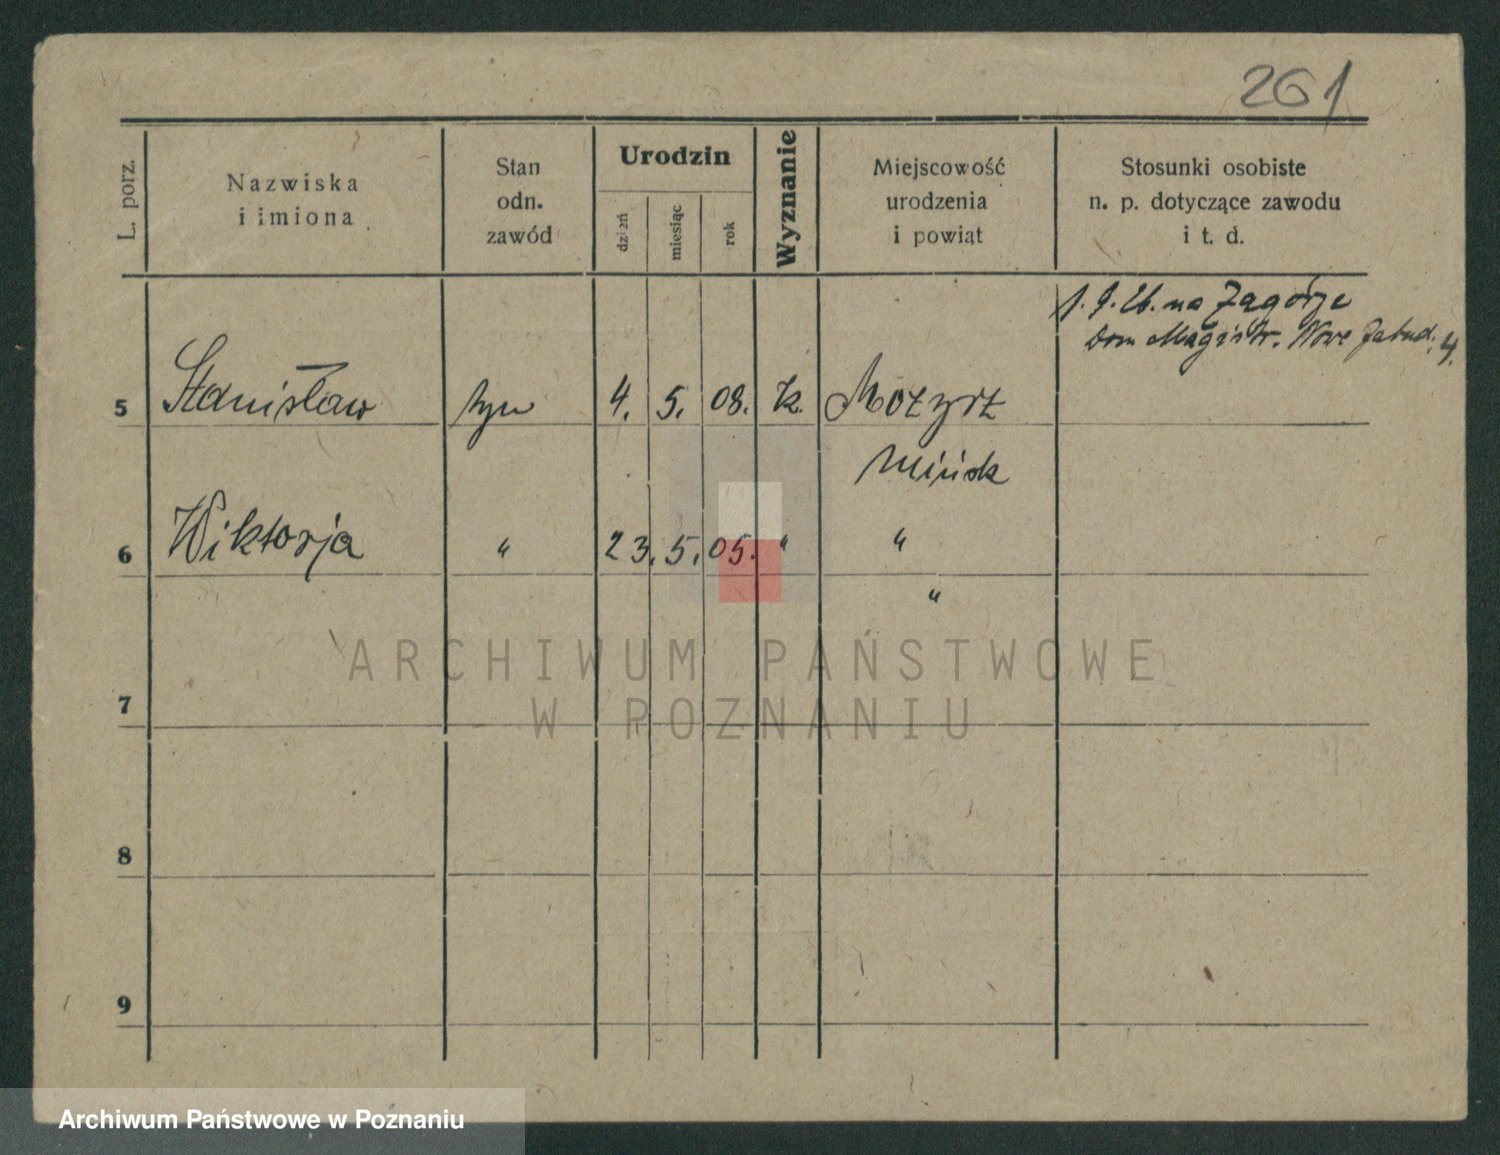 261
L. porz.
Nazwiska
i imiona
Stan
odn.
zawód
Urodzin
dzień
miesiąc
rok
Wyznanie
Miejscowość
urodzenia
i powiąt
Stosunki osobiste
n. p. dotyczące zawodu
i t. d.
1. 9. 26. na Zagórze
Dom Magistr. Nowe Zabud. 4.
5 Stanisław syn 4. 5. 08. k. Mozyrz
Mińsk
6 Wiktorja " 23. 5. 05. " "
"
ARCHIWUM PAŃSTWOWE
W POZNANIU
7
8
9
Archiwum Państwowe w Poznaniu